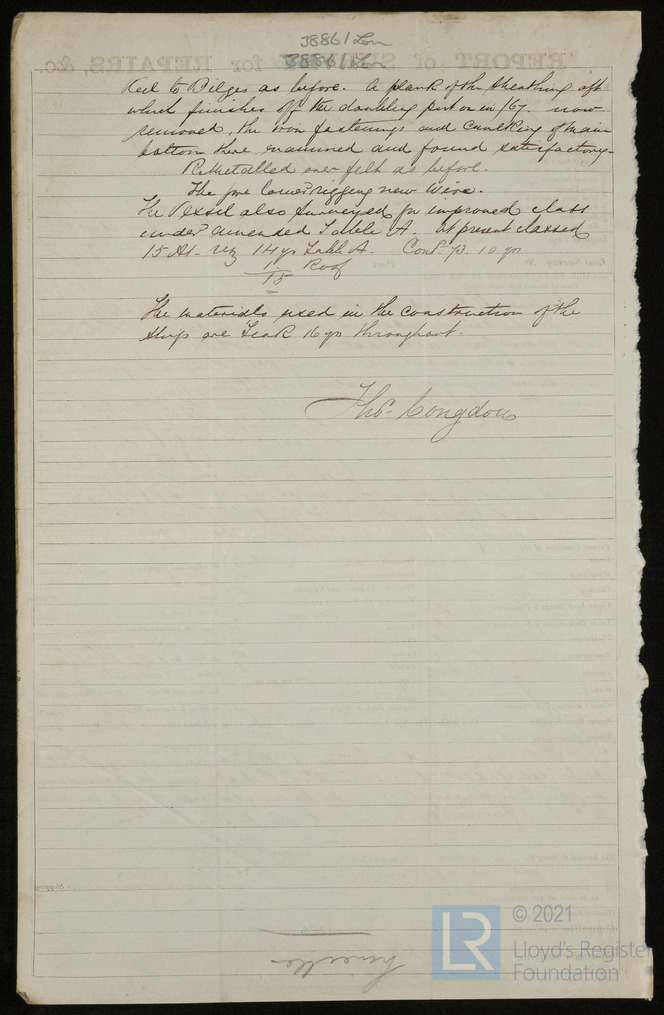 38861 Lon
38861 Lon
REPORT of for REPAIRS, &c.
Keel to Bilges as before. A plank of the sheathing aft
which finishes off the doubling put on in /67 now
removed, the iron fastenings and caulking of main
bottom there examined and found satisfactory.
Remetalled over felt as before.
The fore lower rigging new Wire.
The Vessel also surveyed for improved class
under amended Table A. At present classed
15 A1. viz 14 yrs Table A. Cont. 73. 10 yrs
1 yr Roof
15
The materials used in the construction of the
ship are Teak 16 yrs throughout.
Thos. Congdon
© 2021
LR
Lloyd's Register
Foundation